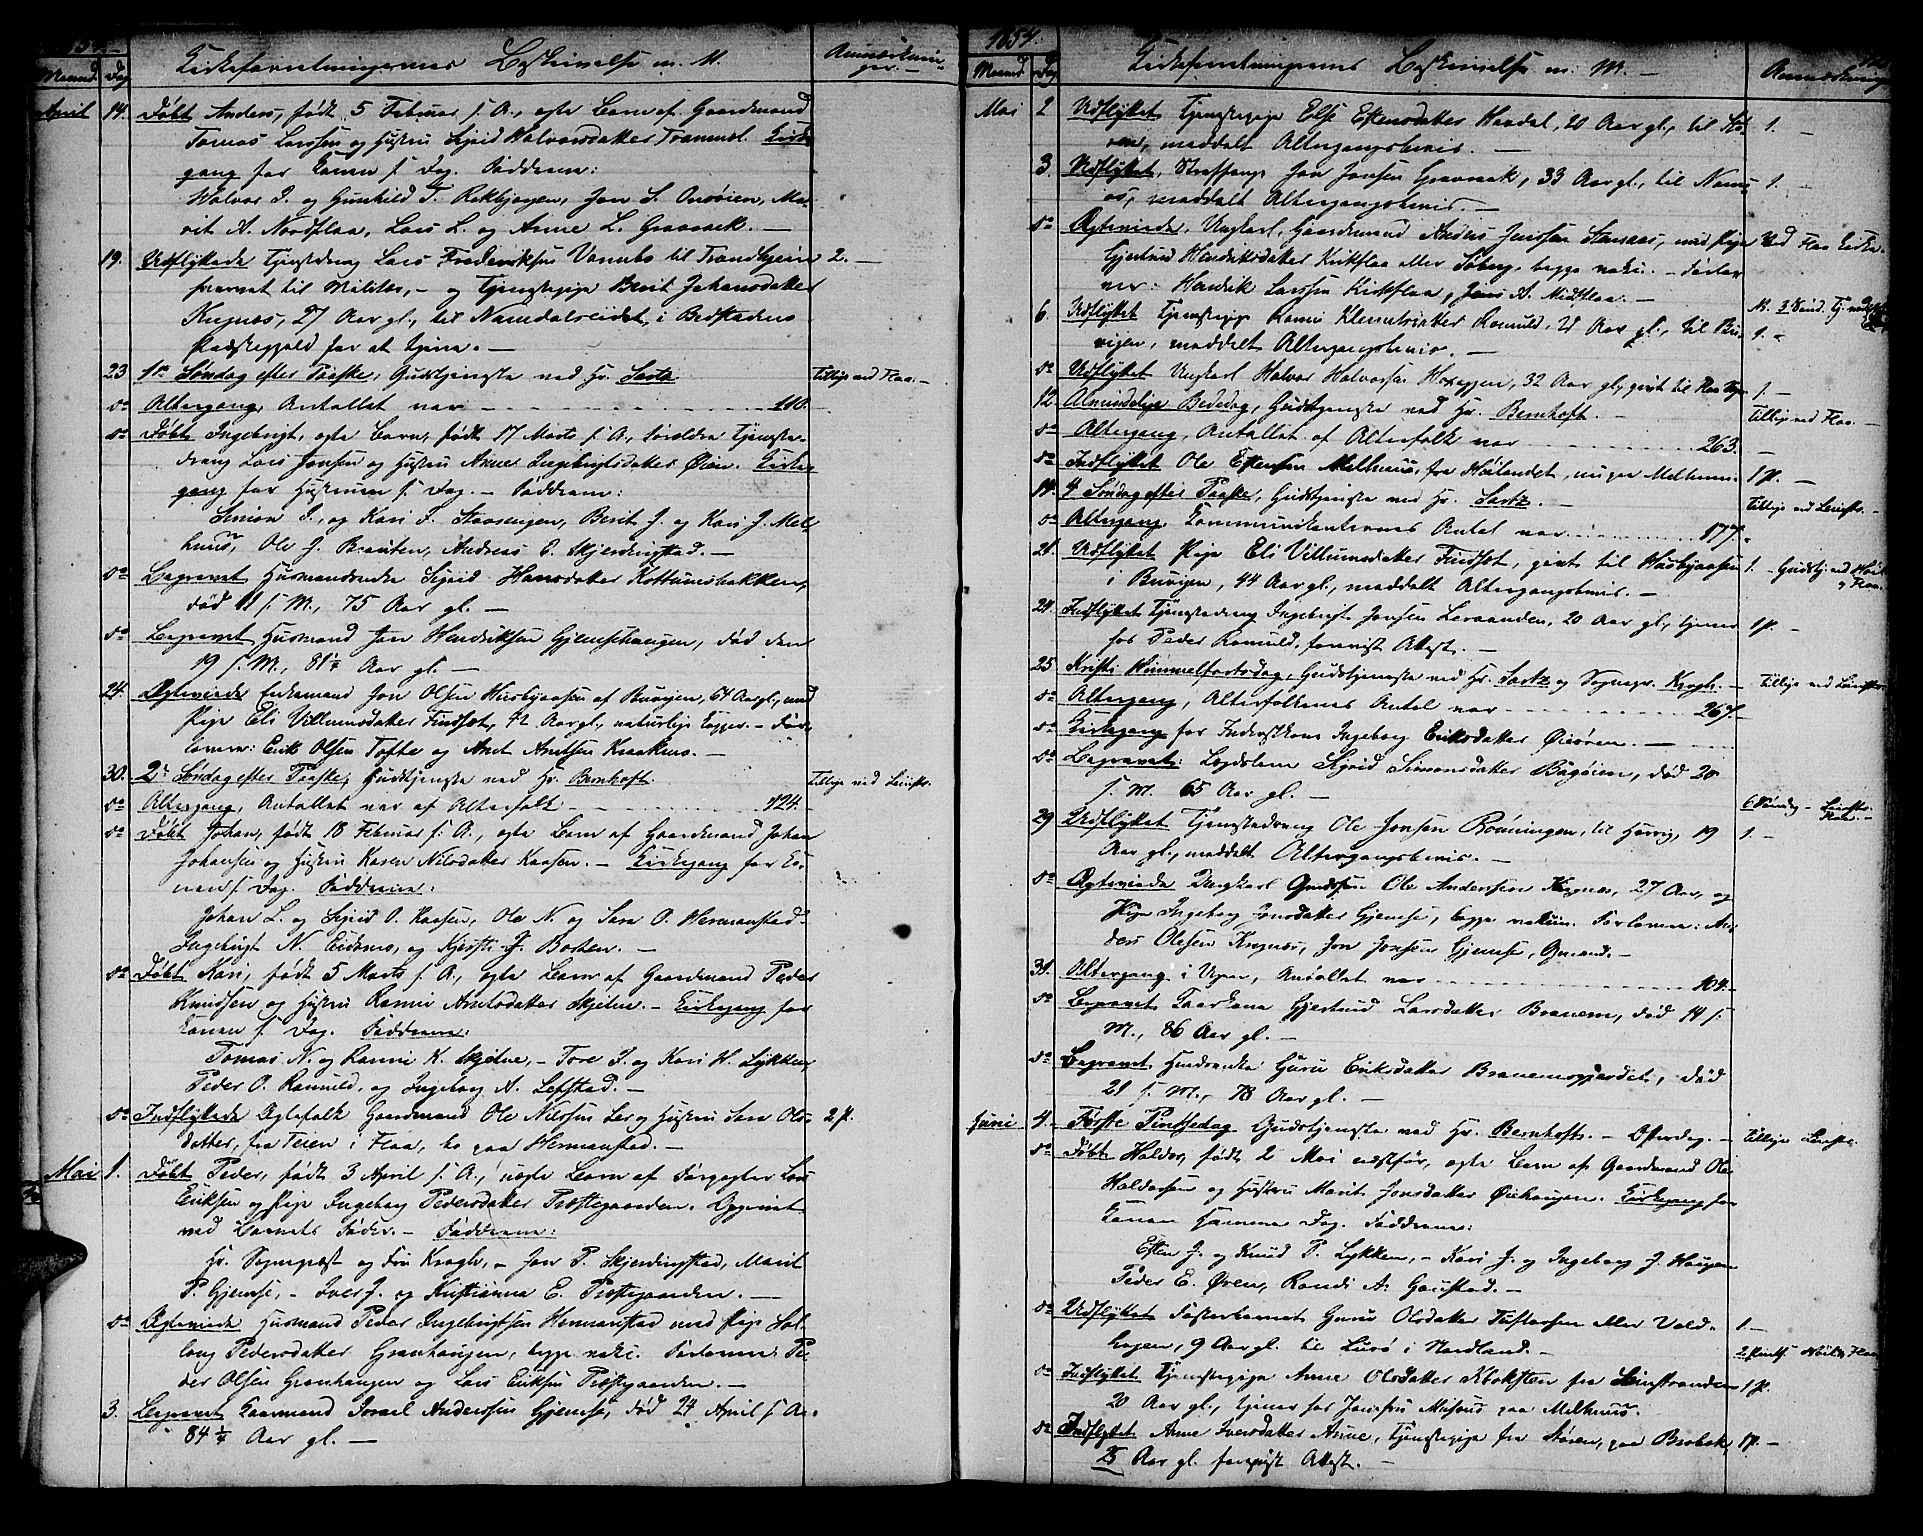 1854.
Maaned. Dag. Kirkeforretningernes Beskrivelse m. M. Anmærkninger.
April 14. Døbt Anders, født 5 Februar f. A., ægte Barn af Gaardmand
Tomas Larssen og Hustru Sigrid Halvorsdatter Trammel. Kirke-
gang for Konen s. Dag. Faddrene:
Halvor I. og Gunhild T. Rekbjørgen, Jon S. Onsøien, Ma-
rit A. Nordflaa, Lars L. og Anne L. Gravraak. —
19. Udflyttede Tjenestedreng Lars Frederiksen Vannebo til Trondhjem 2. —
hvervet til Militær, — og Tjenestepige Berit Johansdatter
Kregnes, 27 Aar gl., til Namdalseidet, i Bedstadens
Præstegjeld for at tjene. —
23 1ste Søndag efter Paaske, Gudstjeneste ved Hr. Sartz Tillige ved Flaa. —
do Altergang, Antallet var 110.
do Døbt Ingebrigt, ægte Barn, født 17 Marts f. A., Forældre Tjeneste-
dreng Lars Jonsen og Hustru Anne Ingebrigtsdatter Øien. Kirke-
gang for Hustruen s. Dag. — Faddrene:
Simon I., og Kari S. Stavsengen, Berit J. og Kari J. Mel-
huus, Ole J. Brauten, Andreas E. Skjerdingstad. —
do Begravet Husmandsenke Sigrid Hansdatter Kottumsbakken,
død 11 s. M., 75 Aar gl. —
do Begravet Husmand Jon Henriksen Gjemsehaugen, død den
19 s. M., 81½ Aar gl. —
24. Ægteviede Enkemand Jon Olsen Husbyaasen af Buvigen, 64 Aar gl., med
Pige Eli Villumsdatter Findset, 42 Aar gl., naturlige Kopper. — For-
lovere: Erik Olsen Tofte og Arnt Arntsen Kraaknes. —
30. 2den Søndag efter Paaske, Gudstjeneste ved Hr. Bernhoft Tillige ved Leinstr.
do Altergang, Antallet var af Alterfolk 124. —
do Døbt Johan, født 18 Februar f. A., ægte Barn af Gaardmand Johan
Johansen og Hustru Karen Nilsdatter Kaasen. — Kirkegang for Ko-
nen s. Dag. Faddrene:
Johan L. og Sigrid O. Kaasen, Ole N. og Sara O. Hermanstad
Ingebrigt N. Eidsmo, og Kjersti J. Borten. —
do Døbt Kari, født 5 Marts f. A., ægte Barn af Gaardmand Peder
Knudsen og Hustru Ranni Arntsdatter Skjetne. — Kirkegang for
Konen s. Dag. Faddrene:
Tomas N. og Ranni K. Skjetne, — Tore I. og Kari H. Lykken,
Peder O. Ramuld, og Ingeborg A. Lefstad. —
do Indflyttede Ægtefolk Gaardmand Ole Nilssen Ler og Hustru Sara Ols- 2 p.
datter, fra Teien i Flaa, bo paa Hermanstad. —
Mai 1. Døbt Peder, født 3 April f. A., uægte Barn af Forpagter Lars
Eriksen og Pige Ingeborg Pedersdatter Præstegaarden. Opgivet
ved Barnets Fader. — Faddrene:
Hr. Sognepræst og Fru Krogh, — Jon P. Skjerdingstad, Marit
P. Gjemse, — Iver J. og Kristianna E. Præstegaarden. —
do Ægteviede Husmand Peder Ingebrigtsen Hermanstad med Pige Sol-
laug Pedersdatter Granhaugen, begge vakc. Forlovere: Pe-
der Olsen Granhaugen og Lars Eriksen Præstegaarden. —
3. Begravet Gaarmand Israel Anderssen Gjemse, død 24 April f. A.
84½ Aar gl. —
1854.
Maaned. Dag Kirkeforretningernes Beskrivelse m. M. — Anmærkninger
Mai 2 Udflyttet Tjenestepige Else Estensdatter Hovdal, 20 Aar gl., til Stø- 1. —
ren, meddelt Altergangsbevis. —
3. Udflyttet, Straffange Jon Jonsen Gravraak, 33 Aar gl., til Nams- 1. —
os, meddelt Altergangsbevis. —
do Ægteviede, Ungkarl, Gaardmand Anders Jenssen Stensaas, med Pige Ved Flaa Kirke
Gjertrud Henriksdatter Kirkflaa eller Søberg, begge vakc. — Forlo-
vere: Henrik Larssen Kirkflaa, Jens A. Midtflaa. —
6. Udflyttet Tjenestepige Ranni Klemetsdatter Ramuld, 21 Aar gl., til Bu- 1. —
vigen, meddelt Altergangsbevis. —
do Udflyttet Ungkarl Halvor Halvorsen 32 Aar gl., 1. —
12 Almindelige Bededag, Gudstjeneste ved Hr. Bernhoft. — Tillige ved Flaa. —
do Altergang, Antallet af Alterfolk var 263. —
do Indflyttet Ole Estensen Melhuus, fra Høilandet, Melhuus. 1 p. —
14. 4 Søndag efter Paaske, Gudstjeneste ved Hr. Sartz. — Tillige ved Leinstr. —
do Altergang, Kommunikanternes Antal var 177. —
21. Udflyttet Pige Eli Villumsdatter Findset, givt til Husbyaasen 1. — Gudstj. ved Høil. og Flaa.
i Buvigen, 44 Aar gl., meddelt Altergangsbevis. —
24. Indflyttet Tjenestedreng Ingebrigt Jonsen Leraanden, 20 Aar gl., tjener 1 p. —
hos Peder Ramuld, forevist Attest. —
25 Kristi Himmelfartsdag, Gudstjeneste ved Hr. Sartz og Sognepr. Krogh. — Tillige ved Leinstr.
do Altergang, Alterfolkenes Antal var 267. —
do Kirkegang for Inderstkone Ingeborg Eriksdatter Øiesøren. —
do Begravet: Lægdslem Sigrid Simonsdatter Bagøien, død 20
s. M. 65 Aar gl. —
6 Søndag — Leinstr. Flaa. —
29 Udflyttet Tjenestedreng Ole Jonsen Rønningen, til Horrig, 19 1. —
Aar gl., meddelt Altergangsbevis. —
do Ægteviede Ungkarl Gaardssøn Ole Anderssen Kregnes, 27 Aar, og
Pige Ingeborg Jonsdatter Gjemse, begge vakcin. Forlovere: An-
ders Olesen Kregnes, Jon Jonssen Gjemse, Gmænd. —
31. Altergang i Ugen, Antallet var 104. —
do Begravet Gjertrud Larsdatter Branem, død 14 s.
M., 86 Aar gl. —
do Begravet Husmsenke Guru Eriksdatter Branemsgjerdet, død
21 s. M., 78 Aar gl. —
Juni 4. Første Pintsedag Gudstjeneste ved Hr. Bernhoft. — Offerdag. — Tillige Leinstr.
do Døbt Haldor, født 2 Mai næstfør, ægte Barn af Gaardmand Ole
Haldorsen og Hustru Marit Jonsdatter Øiehaugen. Kirkegang for
Konen samme Dag. Faddrene:
Esten J. og Knud P. Lykken, — Kari J. og Ingeborg J. Haugen
Peder E. Øren, Randi A. Gaustad. —
do Udflyttet Fosterbarnet Guru Olsdatter Tustersen eller Vold- 1. —
haugen, 9 Aar gl. til Lurø i Nordland. —
do Indflyttet Tjenestepige Anne Olsdatter Kroksten fra Leinstranden 1 p. —
20 Aar gl., tjener hos Jonsens paa Melhuus.
do Indflyttet Anne Iversdatter Aune, Tjenestepige fra Støren, paa Brubak, 1 p. —
25 Aar gl. forevist Attest. —